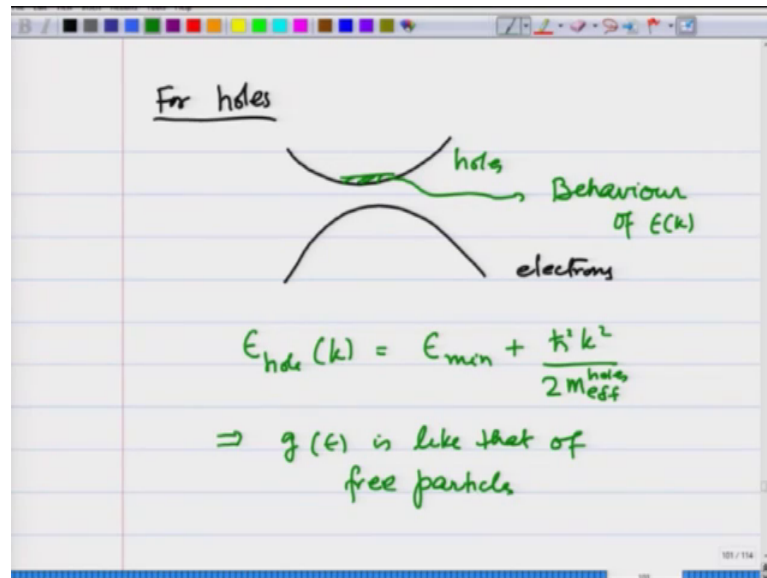 For holes
holes
Behaviour
of ε(k)
electrons
ε_hole (k) = ε_min + ħ²k² / 2 m_eff^holes
⇒ g(ε) is like that of
free particls
101 / 114